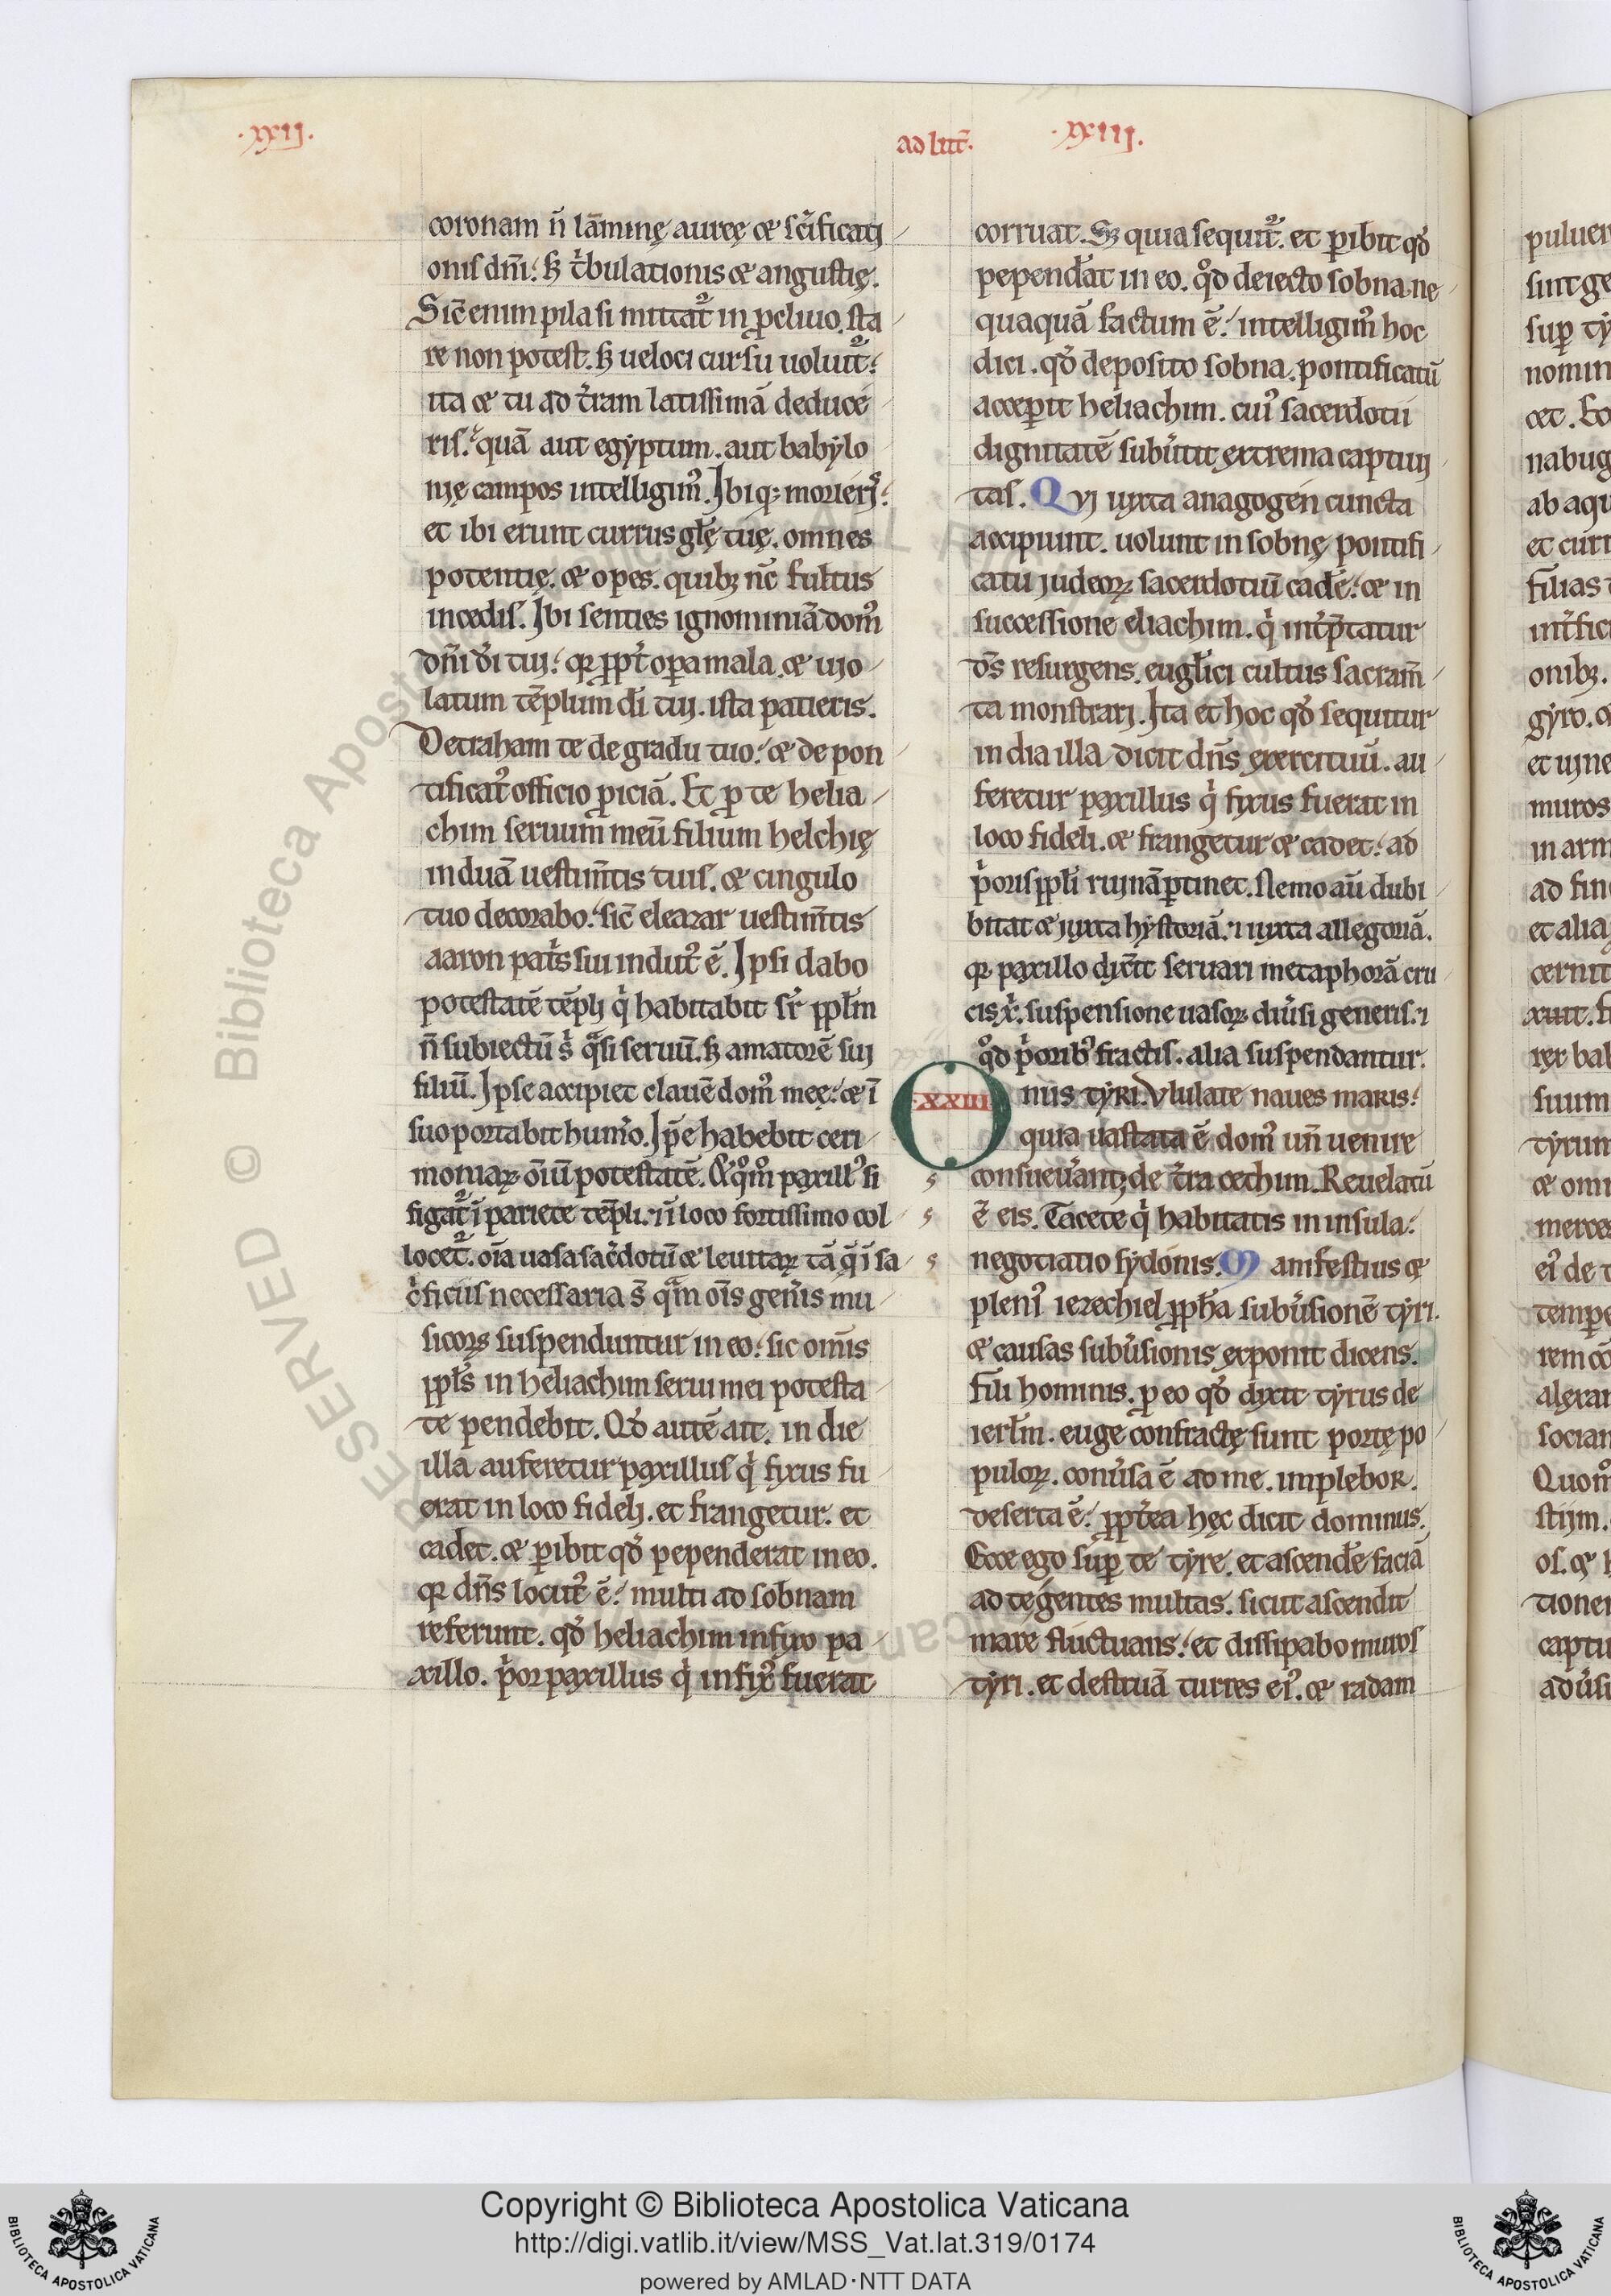 .xxij.
ad litt̄.
.xxiij.
coronam ñ lāminę aureę & sc̄ificati
onis dn̄i: sꝫ tͥbulationis & angustię.
Sic̄ enim pila si mittat᷑ in ꝓcliuo. sta
re non potest. sꝫ ueloci cursu uoluit᷑:
ita & tu ad t̄ram latissimā deduce
ris: quā aut egyptum. aut babylo
nię campos intelligimꝰ. Ibi qꝫ morierꝭ:
et ibi erunt currus gl̄ę tuę. omnes
potentię. & opes. quibꝫ nc̄ fultus
incedis. Ibi senties ignominiā domꝰ
dn̄i di tui: qꝛ ꝓpt̄ oꝑa mala. & uio
latum tēplum dī tui. ista patieris.
Detraham te de gradu tuo: & de pon
tificatꝰ officio ꝓiciā. Et ꝓ te helia
chim seruum meū filium helchię
induā uestim̄tis tuis. & cingulo
tuo decorabo: sic̄ eleazar uestim̄tis
aaron pat̄s sui indutꝰ ē. Ipsi dabo
potestatē tēpli qͥ habitabit ir̄ ppl̄m
ñ subiectū s̄ qͣsi seruū. sꝫ amatorē sui
filiū. Ipse accipiet clauē domꝰ meę: & ī
suo portabit hum̄o. Ip̄e habebit ceri
moniaꝝ oīū potestatē. Et qͦmͦ paxillꝰ si
figat᷑ ī pariete tēpli. ⁊ ī loco fortissimo col
locet᷑. oīa uasa sac̄dotū & leuitaꝝ tā q̄ ī sa
cͥficiis necessaria s̄ qͣm oīs gen̄is mu
sicoꝝ suspenduntur in eo: sic omīs
ppl̄s in heliachim serui mei potesta
te pendebit. Qd̄ autē ait. in die
illa auferetur paxillus qͥ fixus fu
erat in loco fideli. et frangetur. et
cadet. & ꝑibit qd̄ pependerat in eo.
qꝛ dn̄s locutꝰ ē: multi ad sobnam
referunt. qd̄ heliachim infixo pa
xillo. pͥor paxillus qͥ infixꝰ fuerat
corruat. Sꝫ quia sequit᷑. et ꝑibit qd̄
pependāt in eo. qͦd deiecto sobna ne
quaquā factum ē: intelligimꝰ hoc
dici. qd̄ deposito sobna. pontificatū
acceꝑit heliachim. cuiꝰ sacerdotii
dignitatē sub̄tit extrema captiui
tas. Qvi iuxta anagogen cuncta
accipiunt. uolunt in sobnę pontifi
catu iudeoꝝ sacerdotiū cadē: & in
successione eliachim. qͥ int̄p̄tatur
ds̄ resurgens. eugl̄ici cultus sacram̄
ta monstrari. Ita et hoc qd̄ sequitur
in dia illa dicit dn̄s exercituū. au
feretur paxillus qͥ fixus fuerat in
loco fideli. & frangetur & cadet: ad
pͥoris ppl̄i ruinā ꝑtinet. Nemo aū dubi
bitat & iuxta hystoriā. ⁊ iuxta allegoriā.
qꝛ paxillo dix̄it seruari metaphorā cru
cis xͥ. suspensione uasoꝝ diū̄si generis. ⁊
qͦd pͥoribꝰ fractis. alia suspendantur.
.XXIII.
Onus tyri. Vlulate naues maris:
quia uastata ē domꝰ un̄ uenire
consueu̓ant; de t̄ra cethim. Reuelatū
ē eis. Tacete qͥ habitatis in insula:
negotiatio sydonis. Manifestius &
pleniꝰ iezechiel ꝓph̄a sub̄sionē tyri.
& causas sub̄sionis exponit dicens.
Fili hominis. ꝓ eo qd̄ dixit tyrus de
ierl̄m. euge confractę sunt portę po
puloꝝ. conū̄sa ē ad me. implebor.
deserta ē: ꝓpt̄ea hęc dicit dominus.
Ecce ego suꝑ te tyre. et ascendē faciā
ad te gentes multas. sicut ascendit
mare fluctuans: et dissipabo muros
tyri. et destruā turres eiꝰ. & radam
Copyright © Biblioteca Apostolica Vaticana
http://digi.vatlib.it/view/MSS_Vat.lat.319/0174
powered by AMLAD·NTT DATA
BIBLIOTECA APOSTOLICA VATICANA
BIBLIOTECA APOSTOLICA VATICANA